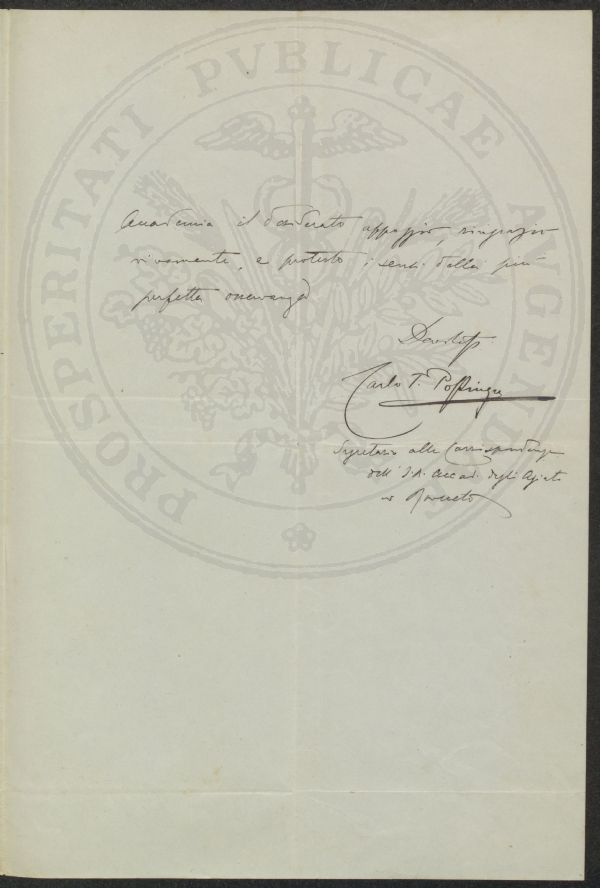 PROSPERITATI PVBLICAE AVGENDAE
Accademia il desiderato appoggio, ringrazio
vivamente, e protesto i sensi della più
perfetta osservanza
Devotiss.
Carlo T.
Segretario alle Corrispondenze
dell' I. R. Accad. degli Agiati
in Rovereto